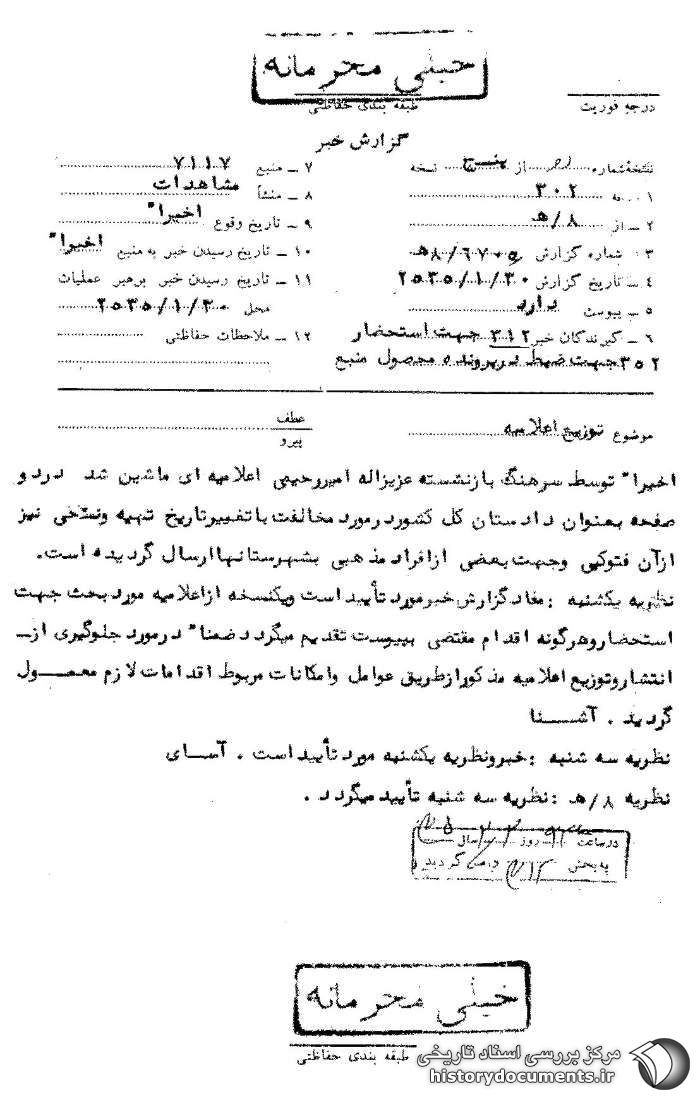 خیلی محرمانه
طبقه بندی حفاظتی
درجه فوریت
گزارش خبر
نسخه شماره از پنج نسخه
۱ – به ۳۰۲
۲ – از ۸/هـ
۳ شماره گزارش ۸/۶۷۰۵هـ
۴ – تاریخ گزارش ۲۵۳۵/۱/۳۰
۵ – پیوست دارد
۶ – گیرندگان خبر ۳۱۲ جهت استحضار
۳۵۲ جهت ضبط در پرونده محصول منبع
۷ – منبع ۷۱۱۷
۸ – منشأ مشاهدات
۹ – تاریخ وقوع اخیرا"
۱۰ – تاریخ رسیدن خبر به منبع اخیرا"
۱۱ – تاریخ رسیدن خبر برهبر عملیات
محل ۲۵۳۵/۱/۳۰
۱۲ – ملاحظات حفاظتی
موضوع توزیع اعلامیه
عطف
پیرو
اخیرا" توسط سرهنگ بازنشسته عزیزاله امیررحیمی اعلامیه ای ماشین شد در دو
صفحه بعنوان دادستان کل کشور در مورد مخالفت با تغییر تاریخ تهیه ونسخی نیز
از آن فتوکپی وجهت بعضی از افراد مذهبی بشهرستانها ارسال گردیده است.
نظریه یکشنبه : مفاد گزارش خبر مورد تأیید است ویکنسخه از اعلامیه مورد بحث جهت
استحضار وهرگونه اقدام مقتضی بپیوست تقدیم میگردد ضمنا" در مورد جلوگیری از ـ
انتشار وتوزیع اعلامیه مذکور از طریق عوامل وامکانات مربوط اقدامات لازم معمـــول
گردید . آشـــنا
نظریه سه شنبه : خبر ونظریه یکشنبه مورد تأیید است . آســای
نظریه ۸/هـ : نظریه سه شنبه تأیید میگردد .
در ساعت روز سال
به بخش گردید
خیلی محرمانه
طبقه بندی حفاظتی
مرکز بررسی اسناد تاریخی
historydocuments.ir